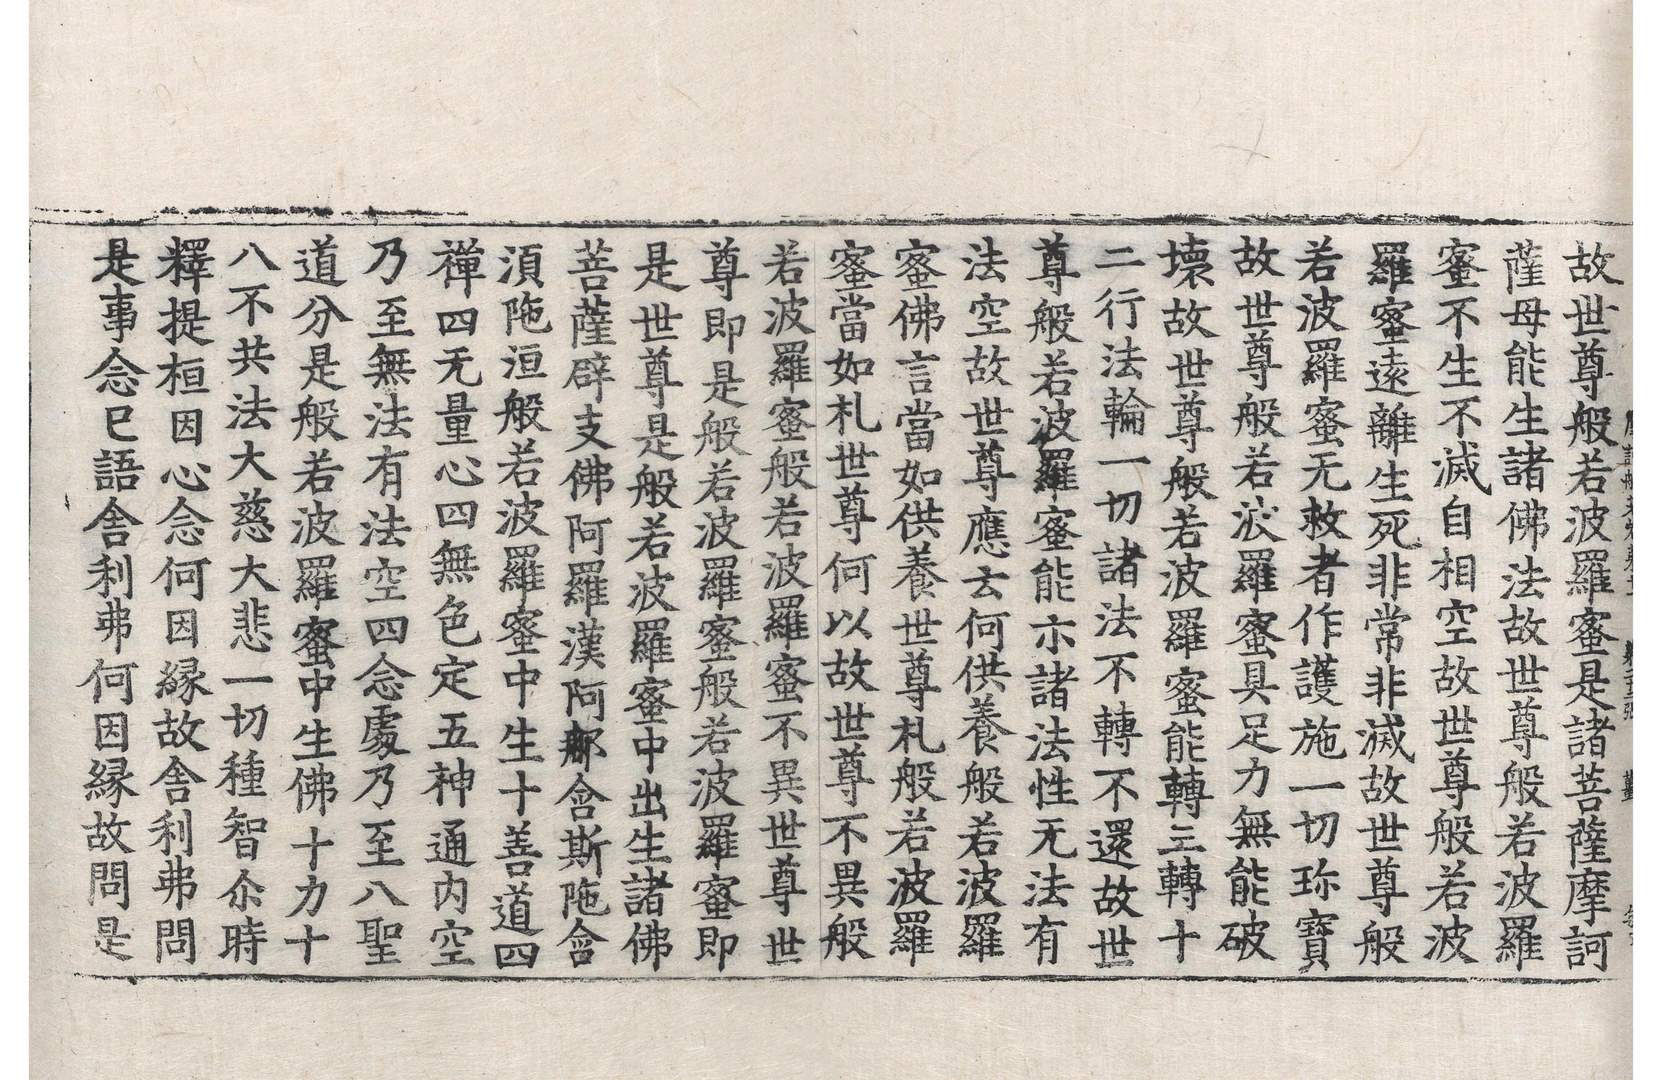 故世尊般若波羅蜜是諸菩薩摩訶
薩母能生諸佛法故世尊般若波羅
蜜不生不滅自相空故世尊般若波
羅蜜遠離生死非常非滅故世尊般
若波羅蜜无救者作護施一切珎寶
故世尊般若波羅蜜具足力無能破
壊故世尊般若波羅蜜能轉三轉十
二行法輪一切諸法不轉不還故世
尊般若波羅蜜能示諸法性无法有
法空故世尊應云何供養般若波羅
蜜佛言當如供養世尊礼般若波羅
蜜當如礼世尊何以故世尊不異般
若波羅蜜般若波羅蜜不異世尊世
尊即是般若波羅蜜般若波羅蜜即
是世尊是般若波羅蜜中出生諸佛
菩薩辟支佛阿羅漢阿那含斯陁含
湏陁洹般若波羅蜜中生十善道四
禪四无量心四無色定五神通内空
乃至無法有法空四念處乃至八聖
道分是般若波羅蜜中生佛十力十
八不共法大慈大悲一切種智尒時
釋提桓因心念何因縁故舎利弗問
是事念已語舎利弗何因縁故問是